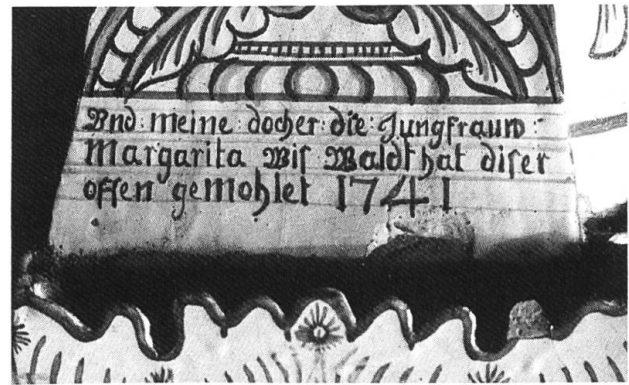 Vnd : meine : docher : die : Jungfrauw :
Margarita Wis Waldt hat diser
offen gemohlet 1741